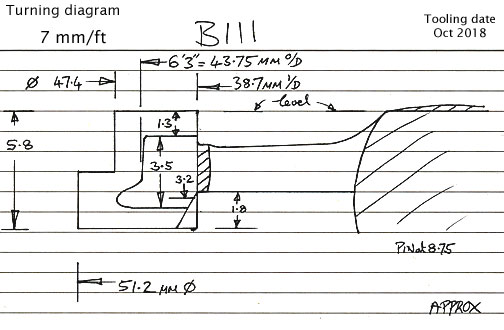 Turning diagram
7 mm/ft
B111
Tooling date
Oct 2018
6'3" = 43.75 MM O/D
Ø 47.4
38.7MM I/D
level
1.3
5.8
3.5
3.2
1.8
PiNat8.75
51.2 MM Ø
APPROX